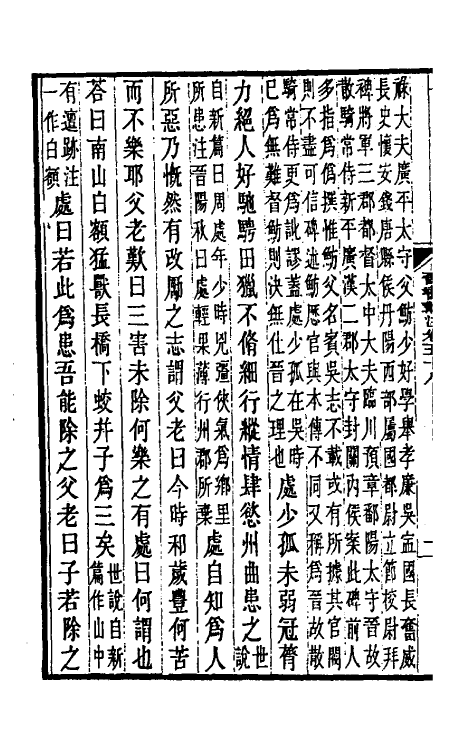 祿大夫廣平太守父魴少好學舉孝廉吳寧國長奮威
長史懷安錢唐縣侯丹陽西部屬國都尉立節校尉拜
裨將軍三郡都督太中大夫臨川預章鄱陽太守晉故
散騎常侍新平廣漢二郡太守封關內侯案此碑前人
多指為偽撰惟魴父名賓吳志不載或有所據其官閥
則不盡可信碑述魴歷官與本傳不同又稱為晉故散
騎常侍更為訛謬蓋處少孤在吳時
已為無難督魴則決無仕晉之理也
處少孤未弱冠膂
力絕人好馳騁田獵不脩細行縱情肆慾州曲患之
世說
自新篇曰周處年少時兇彊俠氣為鄉里
所患注晉陽秋曰處輕果薄行州郡所棄
處自知為人
所惡乃慨然有改勵之志謂父老曰今時和歲豐何苦
而不樂耶父老歎曰三害未除何樂之有處曰何謂也
荅曰南山白額猛獸長橋下蛟并子為三矣
世說自新
篇作山中
有邅跡注
一作白額
處曰若此為患吾能除之父老曰子若除之
晉書斠注卷五十八